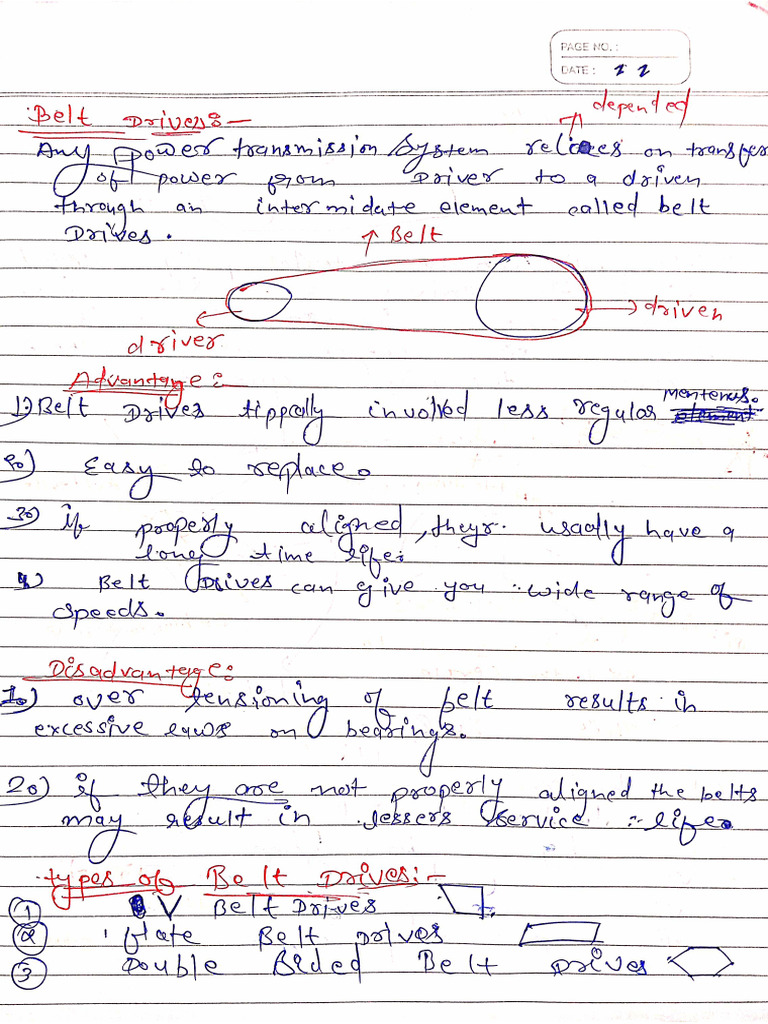 PAGE NO. :
DATE : 22
depended
Belt Drives:-
Any power transmission system relies on transfer
of power from Driver to a driven
through an intermidate element called belt
Drives.
Belt
driven
driver
Advantage:
1) Belt Drives tippcally involved less regular Mentenus.
2.) Easy to replace.
3.) if properly aligned, theyr. usually have a
long time life.
4) Belt Drives can give you wide range of
speeds.
Disadvantage:
1.) over tensioning of belt results in
excessive on bearings.
2.) if they are not properly aligned the belts
may result in lessers service life.
types of Belt Drives:-
1 V Belt Drives
2 flate Belt Drives
3 Double Sided Belt Drives